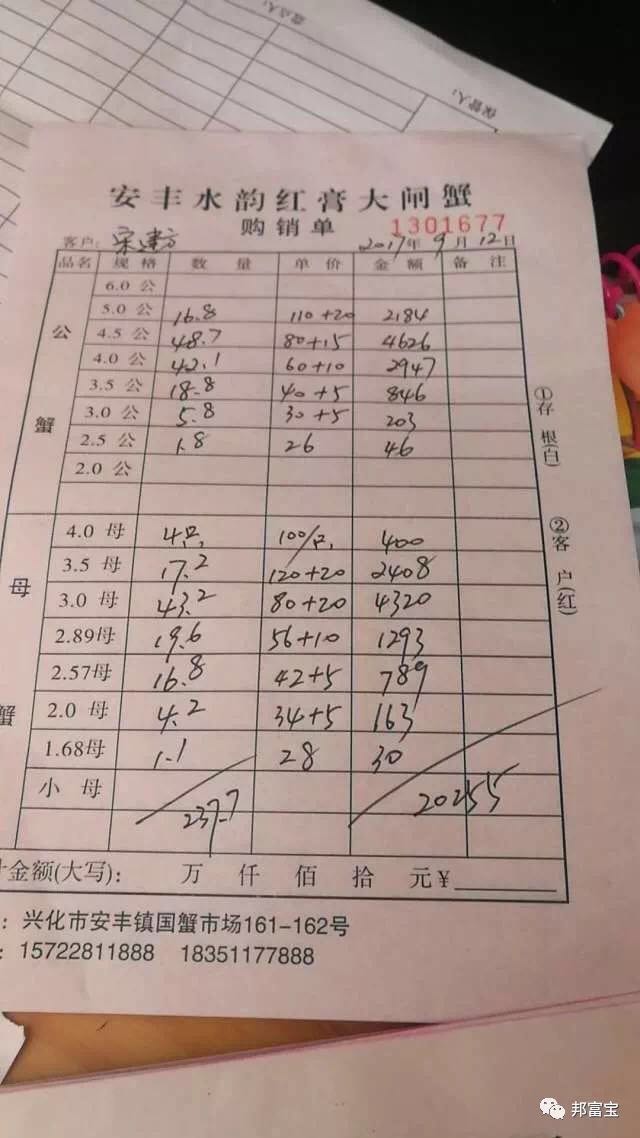 盘点人:
保管人:
安丰水韵红膏大闸蟹
购销单 1301677
客户: 宋建方 2017年9月12日
品名 规格 数量 单价 金额 备注
公蟹
6.0 公
5.0 公 16.8 110+20 2184
4.5 公 48.7 80+15 4626
4.0 公 42.1 60+10 2947
3.5 公 18.8 40+5 846
3.0 公 5.8 30+5 203
2.5 公 1.8 26 46
2.0 公
母蟹
4.0 母 4只 100/只 400
3.5 母 17.2 120+20 2408
3.0 母 43.2 80+20 4320
2.89母 19.6 56+10 1293
2.57母 16.8 42+5 789
2.0 母 4.2 34+5 163
1.68母 1.1 28 30
小 母
237.7 20255
①存根(白)
②客户(红)
计金额(大写): 万 仟 佰 拾 元¥
: 兴化市安丰镇国蟹市场161-162号
: 15722811888 18351177888
邦富宝